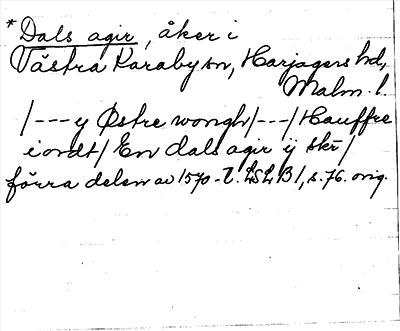 * Dals agir, åker i
Västra Karaby sn, Harjagers hd,
Malm. l.
/---y Østre wongh/---/Hauffre
iordt/ En dals agir ij skr/
förra delen av 1570-t. LSLB1, s. 76. orig.